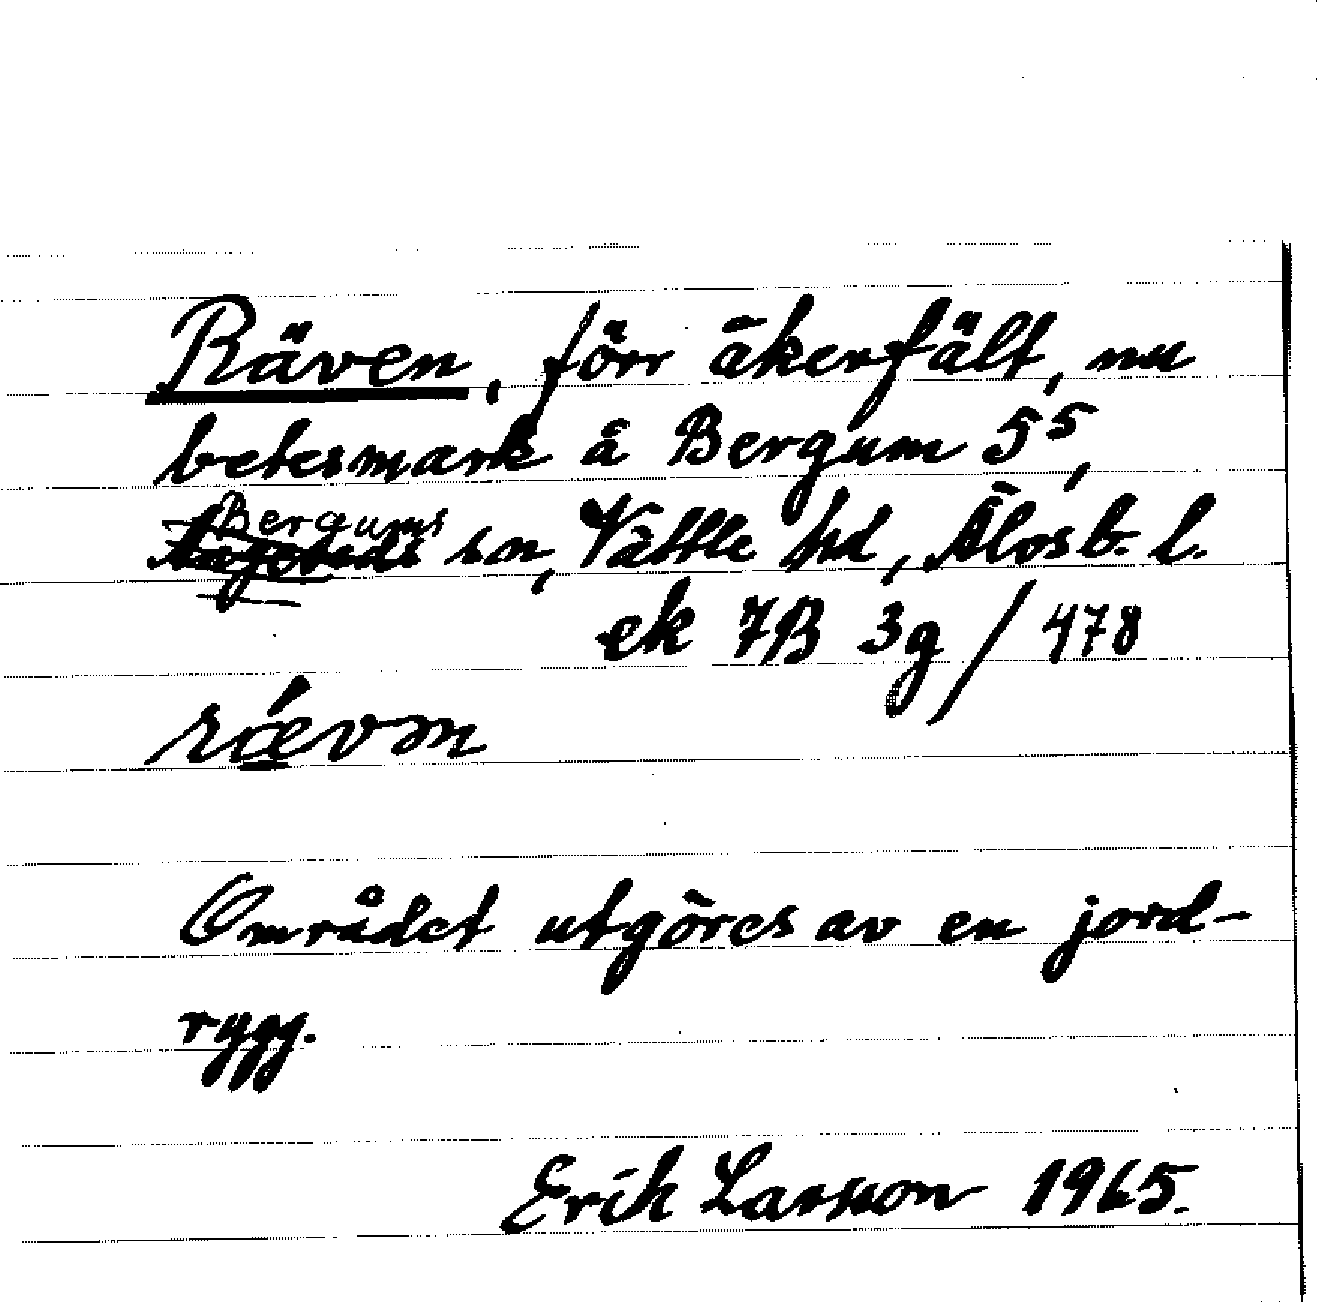 Räven, förr åkerfält, nu
betesmark å Bergum 5⁵,
Bergums
Angereds sn, Vättle hd, Älvsb. l.
ek 7B 3g / 478
rǽvən
Området utgöres av en jord-
rygg.
Erik Larsson 1965.